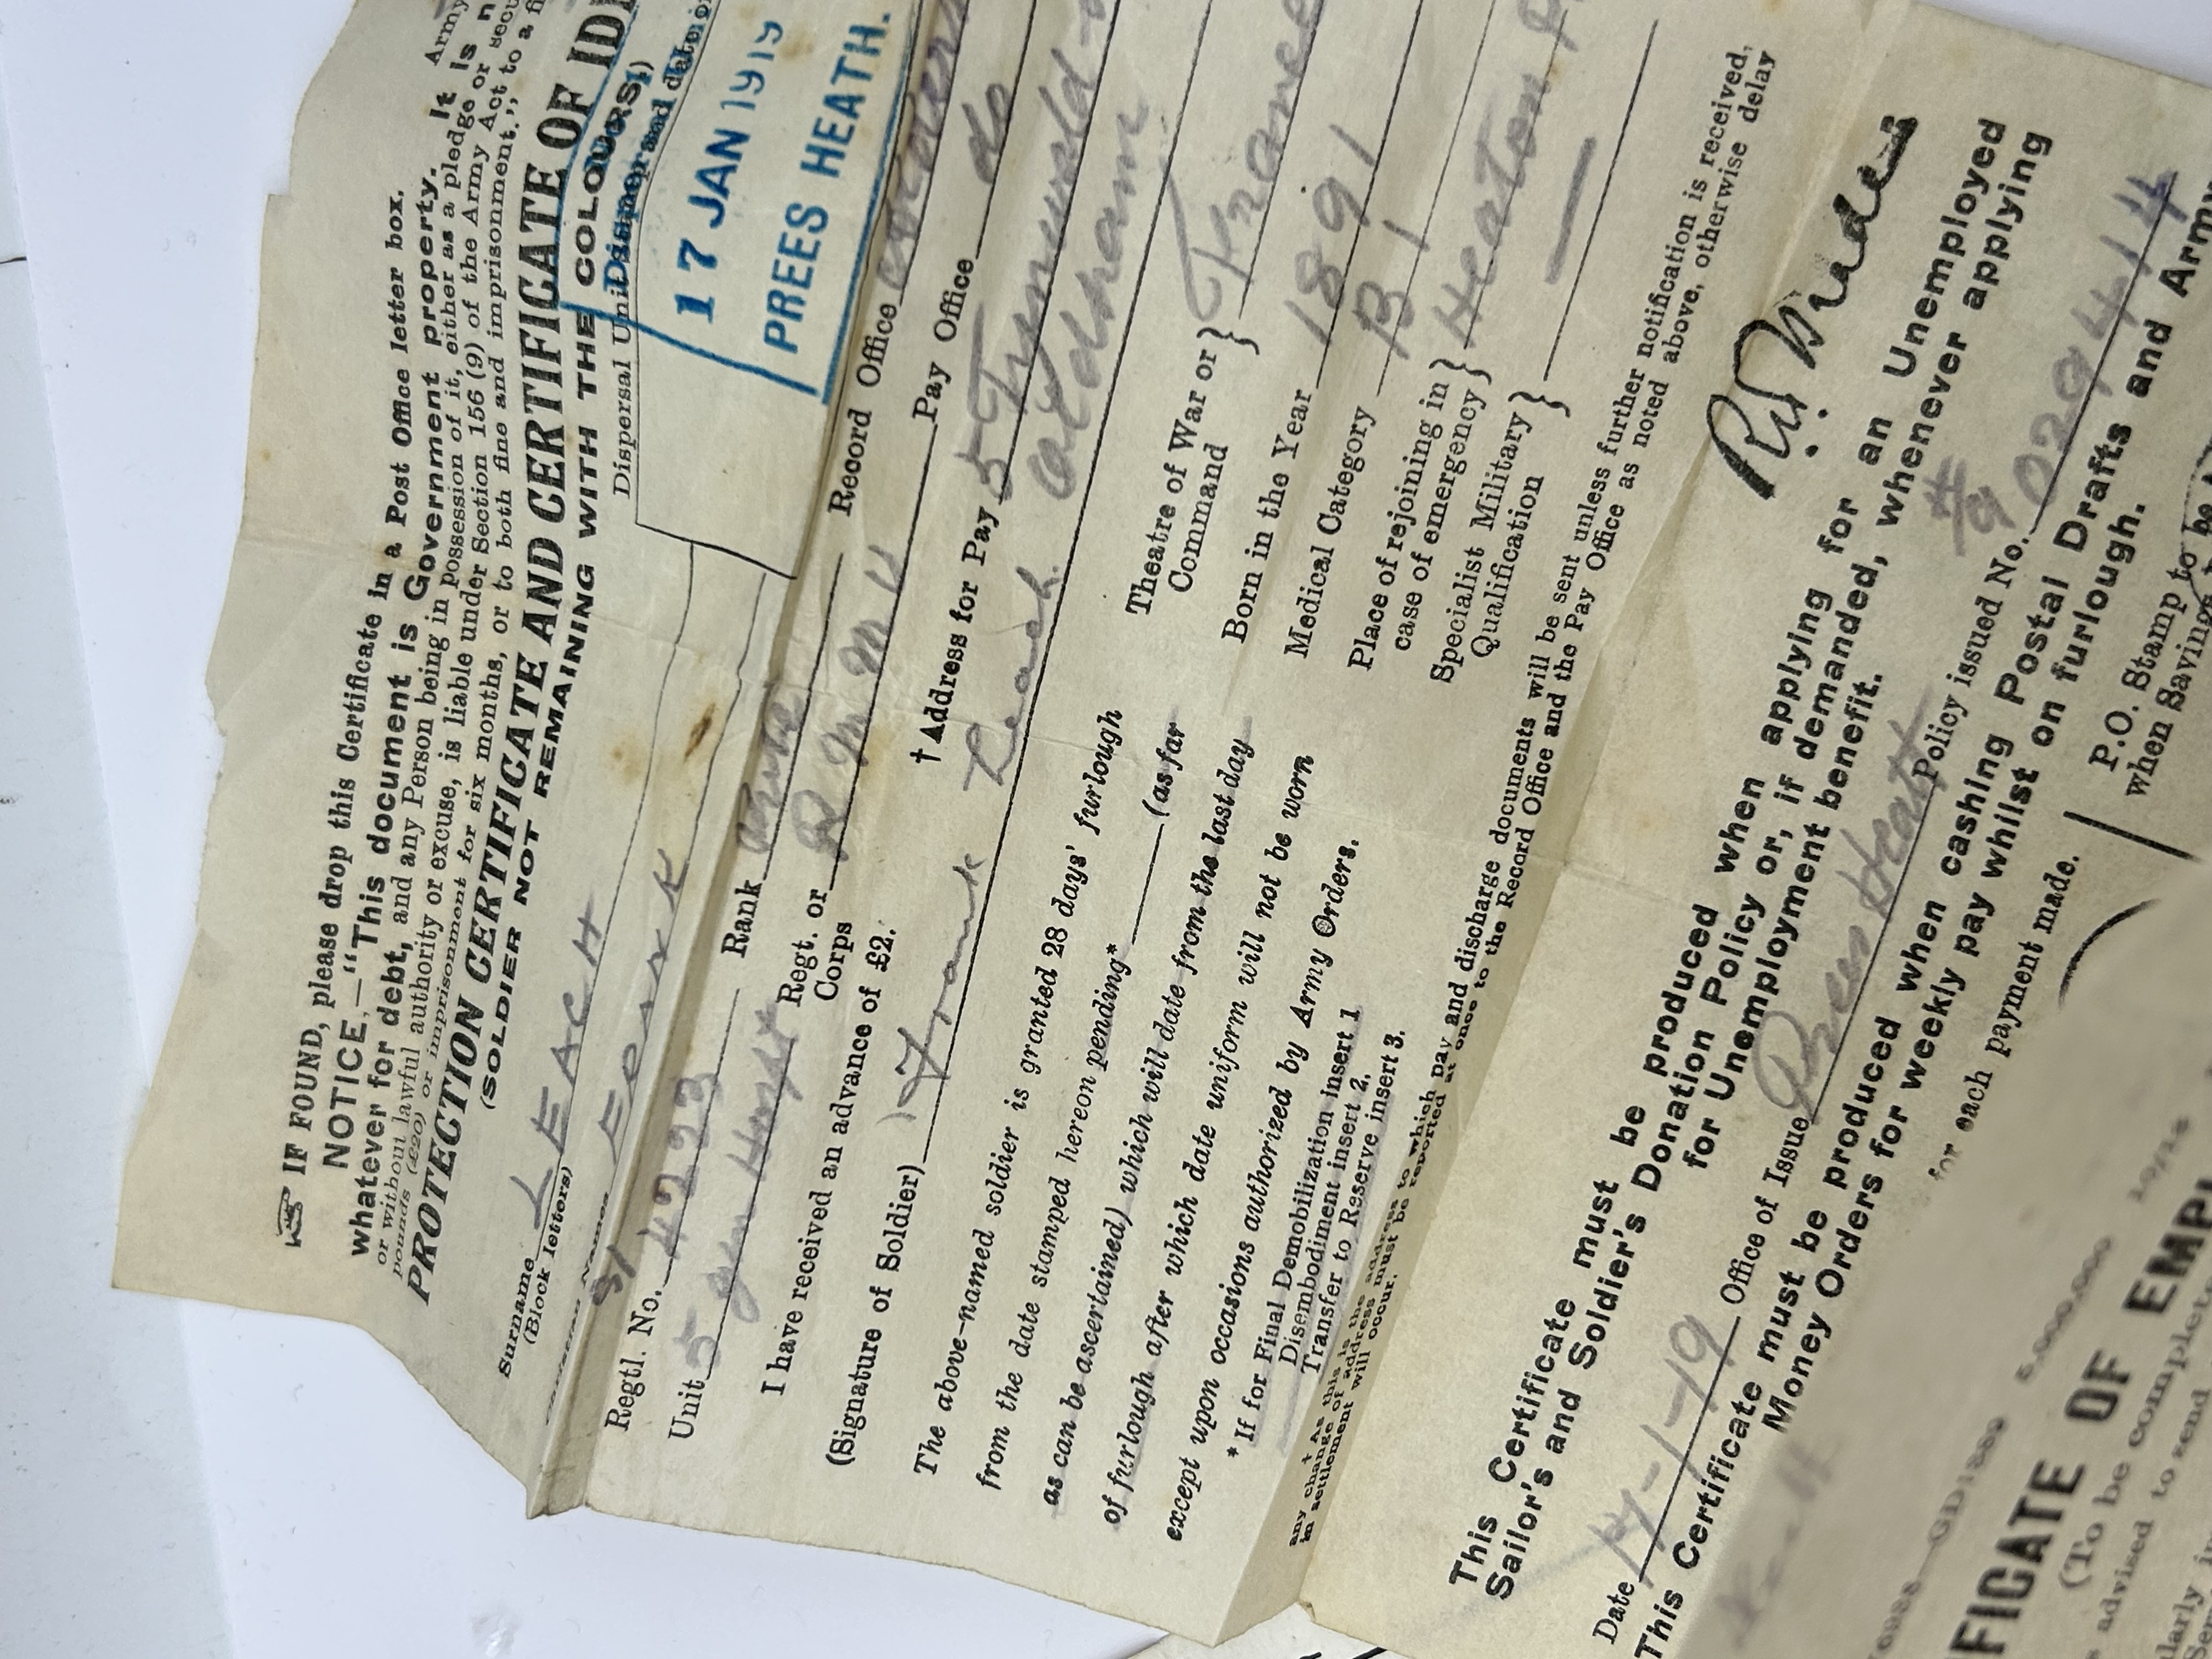 IF FOUND, please drop this Certificate in a Post Office letter box. Army
NOTICE.—"This document is Government property. It is n
whatever for debt, and any Person being in possession of it, either as a pledge or secu
or without lawful authority or excuse, is liable under Section 156 (9) of the Army Act to a fi
pounds (£20) or imprisonment for six months, or to both fine and imprisonment."
PROTECTION CERTIFICATE AND CERTIFICATE OF IDE
(SOLDIER NOT REMAINING WITH THE COLOURS.)
Surname LEACH
(Block letters)
Dispersal Unit
17 JAN 1919
PREES HEATH.
Regtl. No. Rank Record Office
Unit 5 Regt. or Corps Pay Office do
I have received an advance of £2. † Address for Pay 5
(Signature of Soldier) Frank Leach Oldham
The above-named soldier is granted 28 days' furlough
from the date stamped hereon pending* (as far
as can be ascertained) which will date from the last day
of furlough after which date uniform will not be worn
except upon occasions authorized by Army Orders.
* If for Final Demobilization insert 1
Disembodiment insert 2.
Transfer to Reserve insert 3.
Theatre of War or Command France
Born in the Year 1891
Medical Category B 1
Place of rejoining in case of emergency Heaton P
Specialist Military Qualification —
† As this is the address to which pay and discharge documents will be sent unless further notification is received,
any change of address must be reported at once to the Record Office and the Pay Office as noted above, otherwise delay
in settlement will occur.
This Certificate must be produced when applying for an Unemployed
Sailor's and Soldier's Donation Policy or, if demanded, whenever applying
for Unemployment benefit.
Date 17-1-19 Office of Issue Prees Heath Policy issued No. 029414
This Certificate must be produced when cashing Postal Drafts and Army
Money Orders for weekly pay whilst on furlough.
P.O. Stamp to be
when Saving
for each payment made.
5,000,000
FICATE OF EMPL
(To be complete
s advised to send